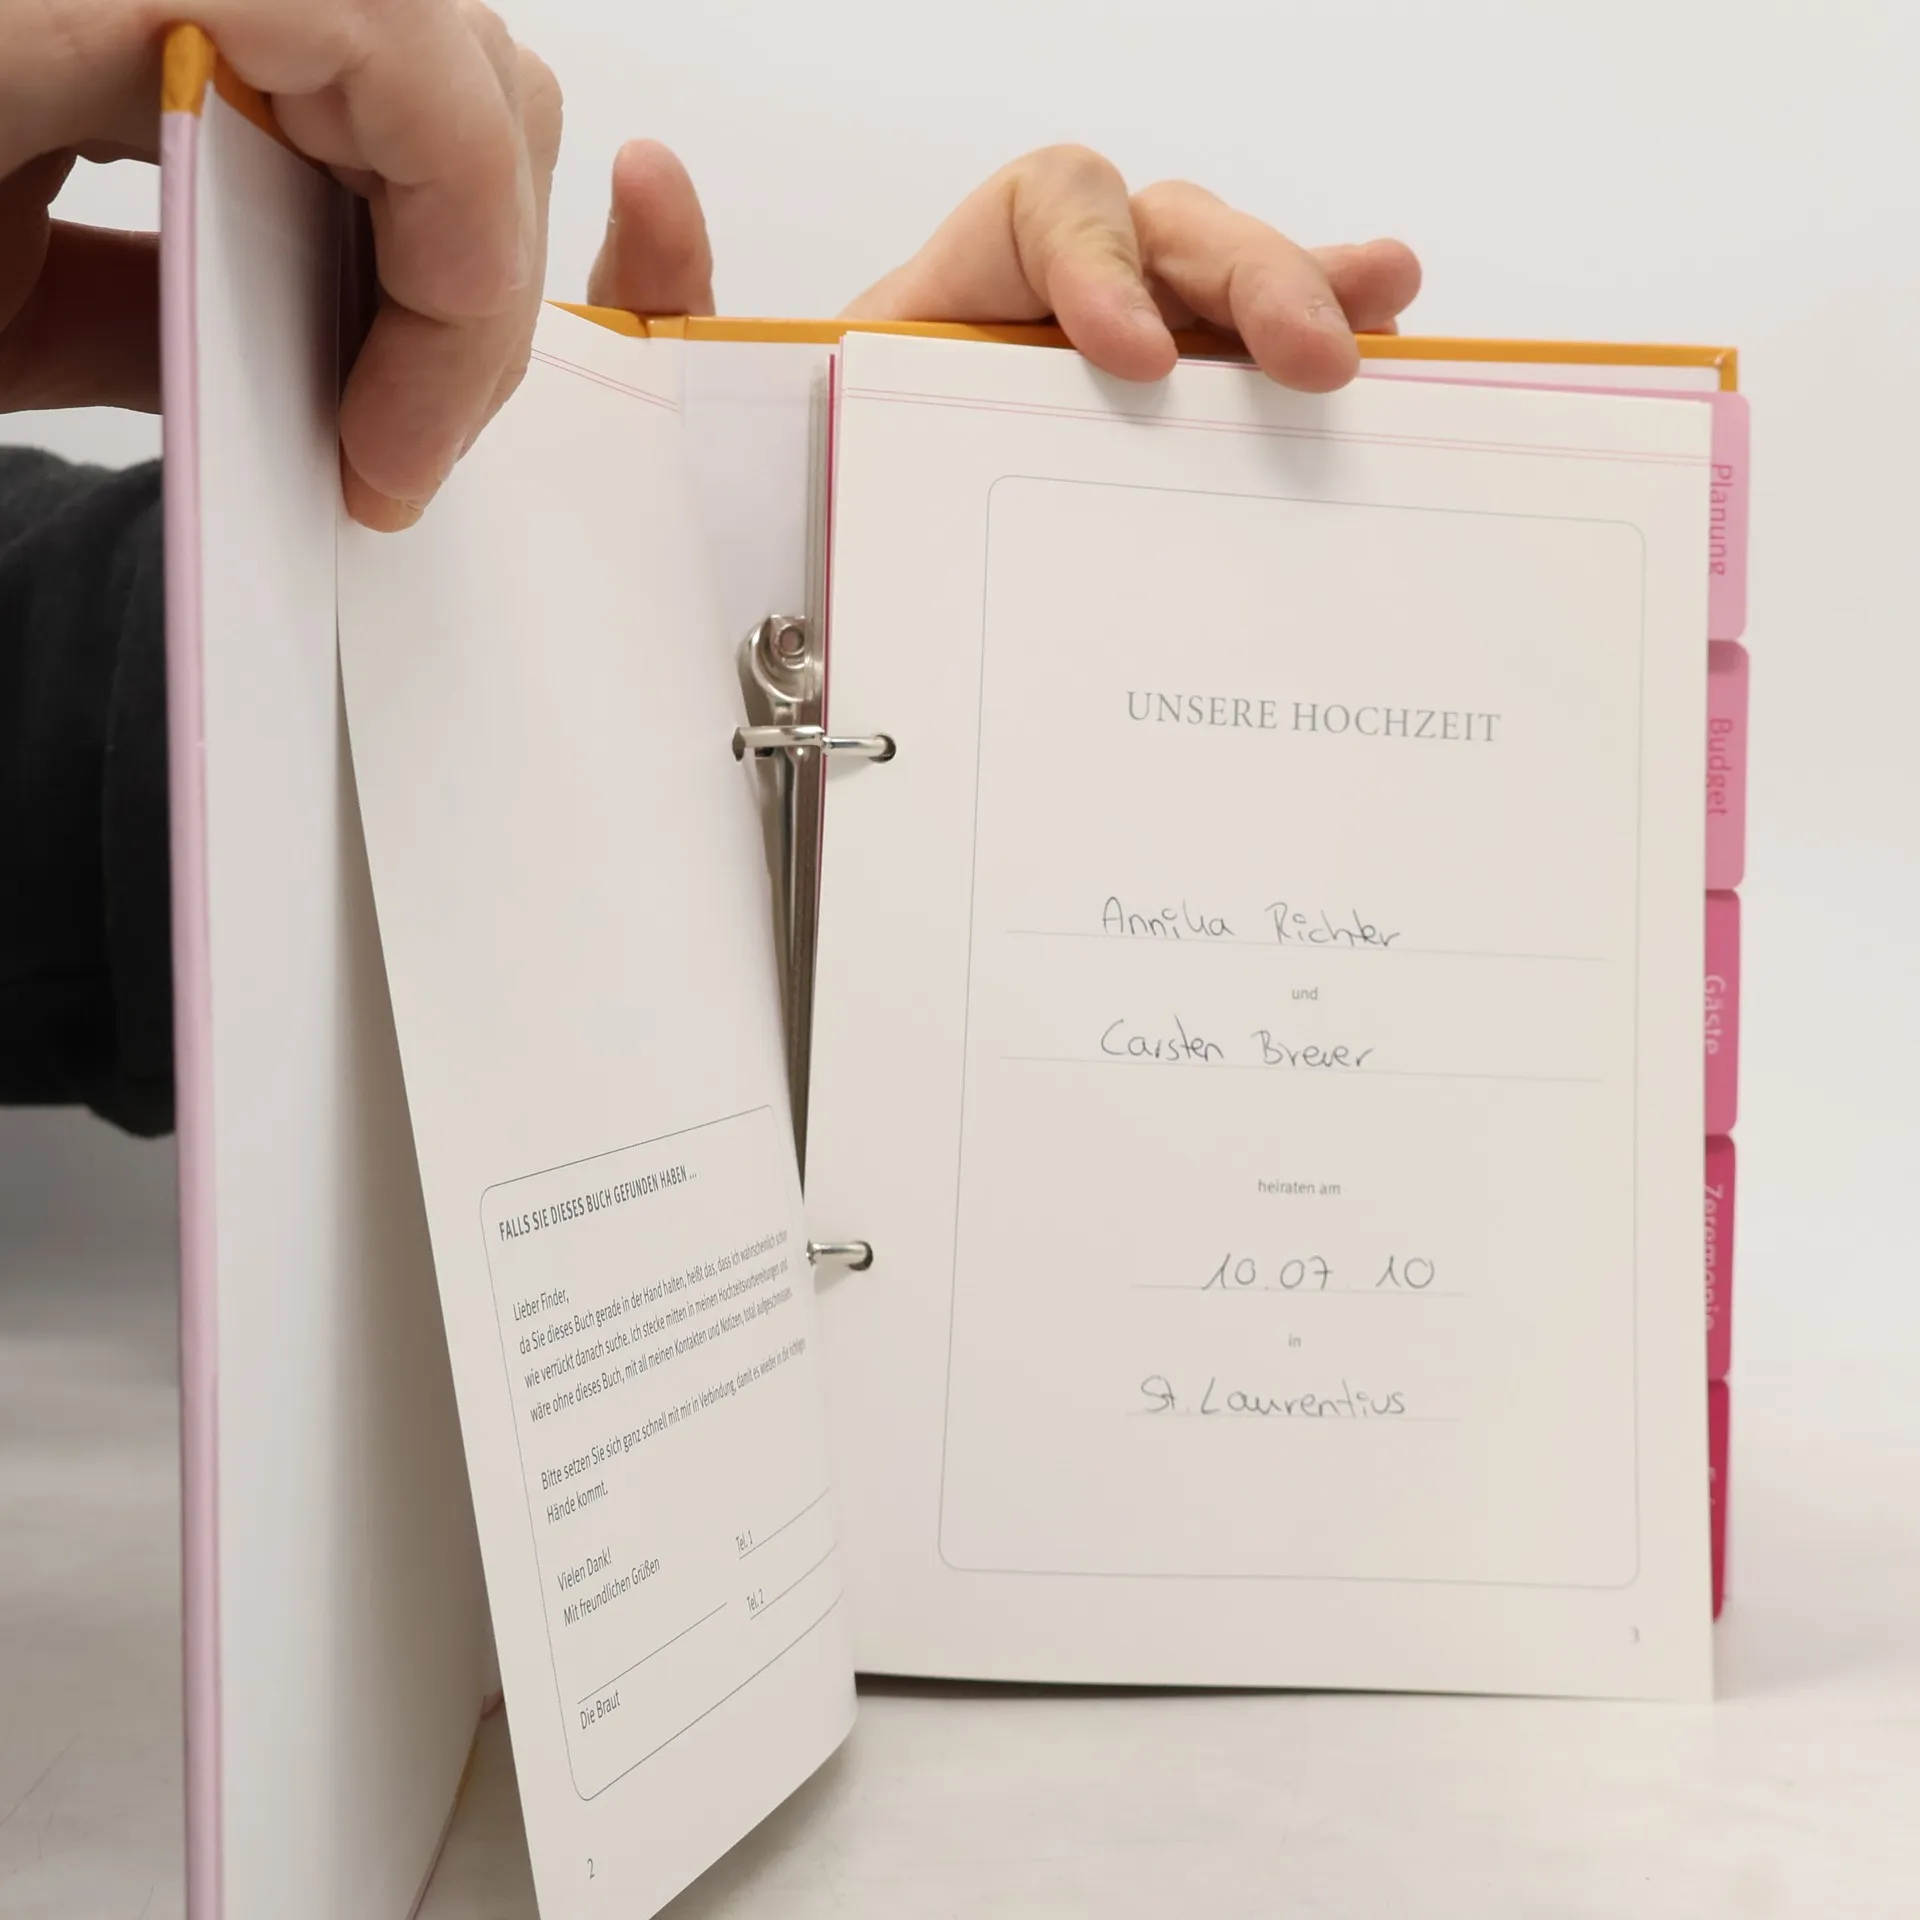 FALLS SIE DIESES BUCH GEFUNDEN HABEN ...
Lieber Finder,
da Sie dieses Buch gerade in der Hand halten, heißt das, dass ich wahrscheinlich schon
wie verrückt danach suche. Ich stecke mitten in meinen Hochzeitsvorbereitungen und
wäre ohne dieses Buch, mit all meinen Kontakten und Notizen, total aufgeschmissen.
Bitte setzen Sie sich ganz schnell mit mir in Verbindung, damit es wieder in die richtigen
Hände kommt.
Vielen Dank!
Mit freundlichen Grüßen
Tel. 1
Tel. 2
Die Braut
2
UNSERE HOCHZEIT
Annika Richter
und
Carsten Breuer
heiraten am
10.07.10
in
St. Laurentius
3
Planung
Budget
Gäste
Zeremonie